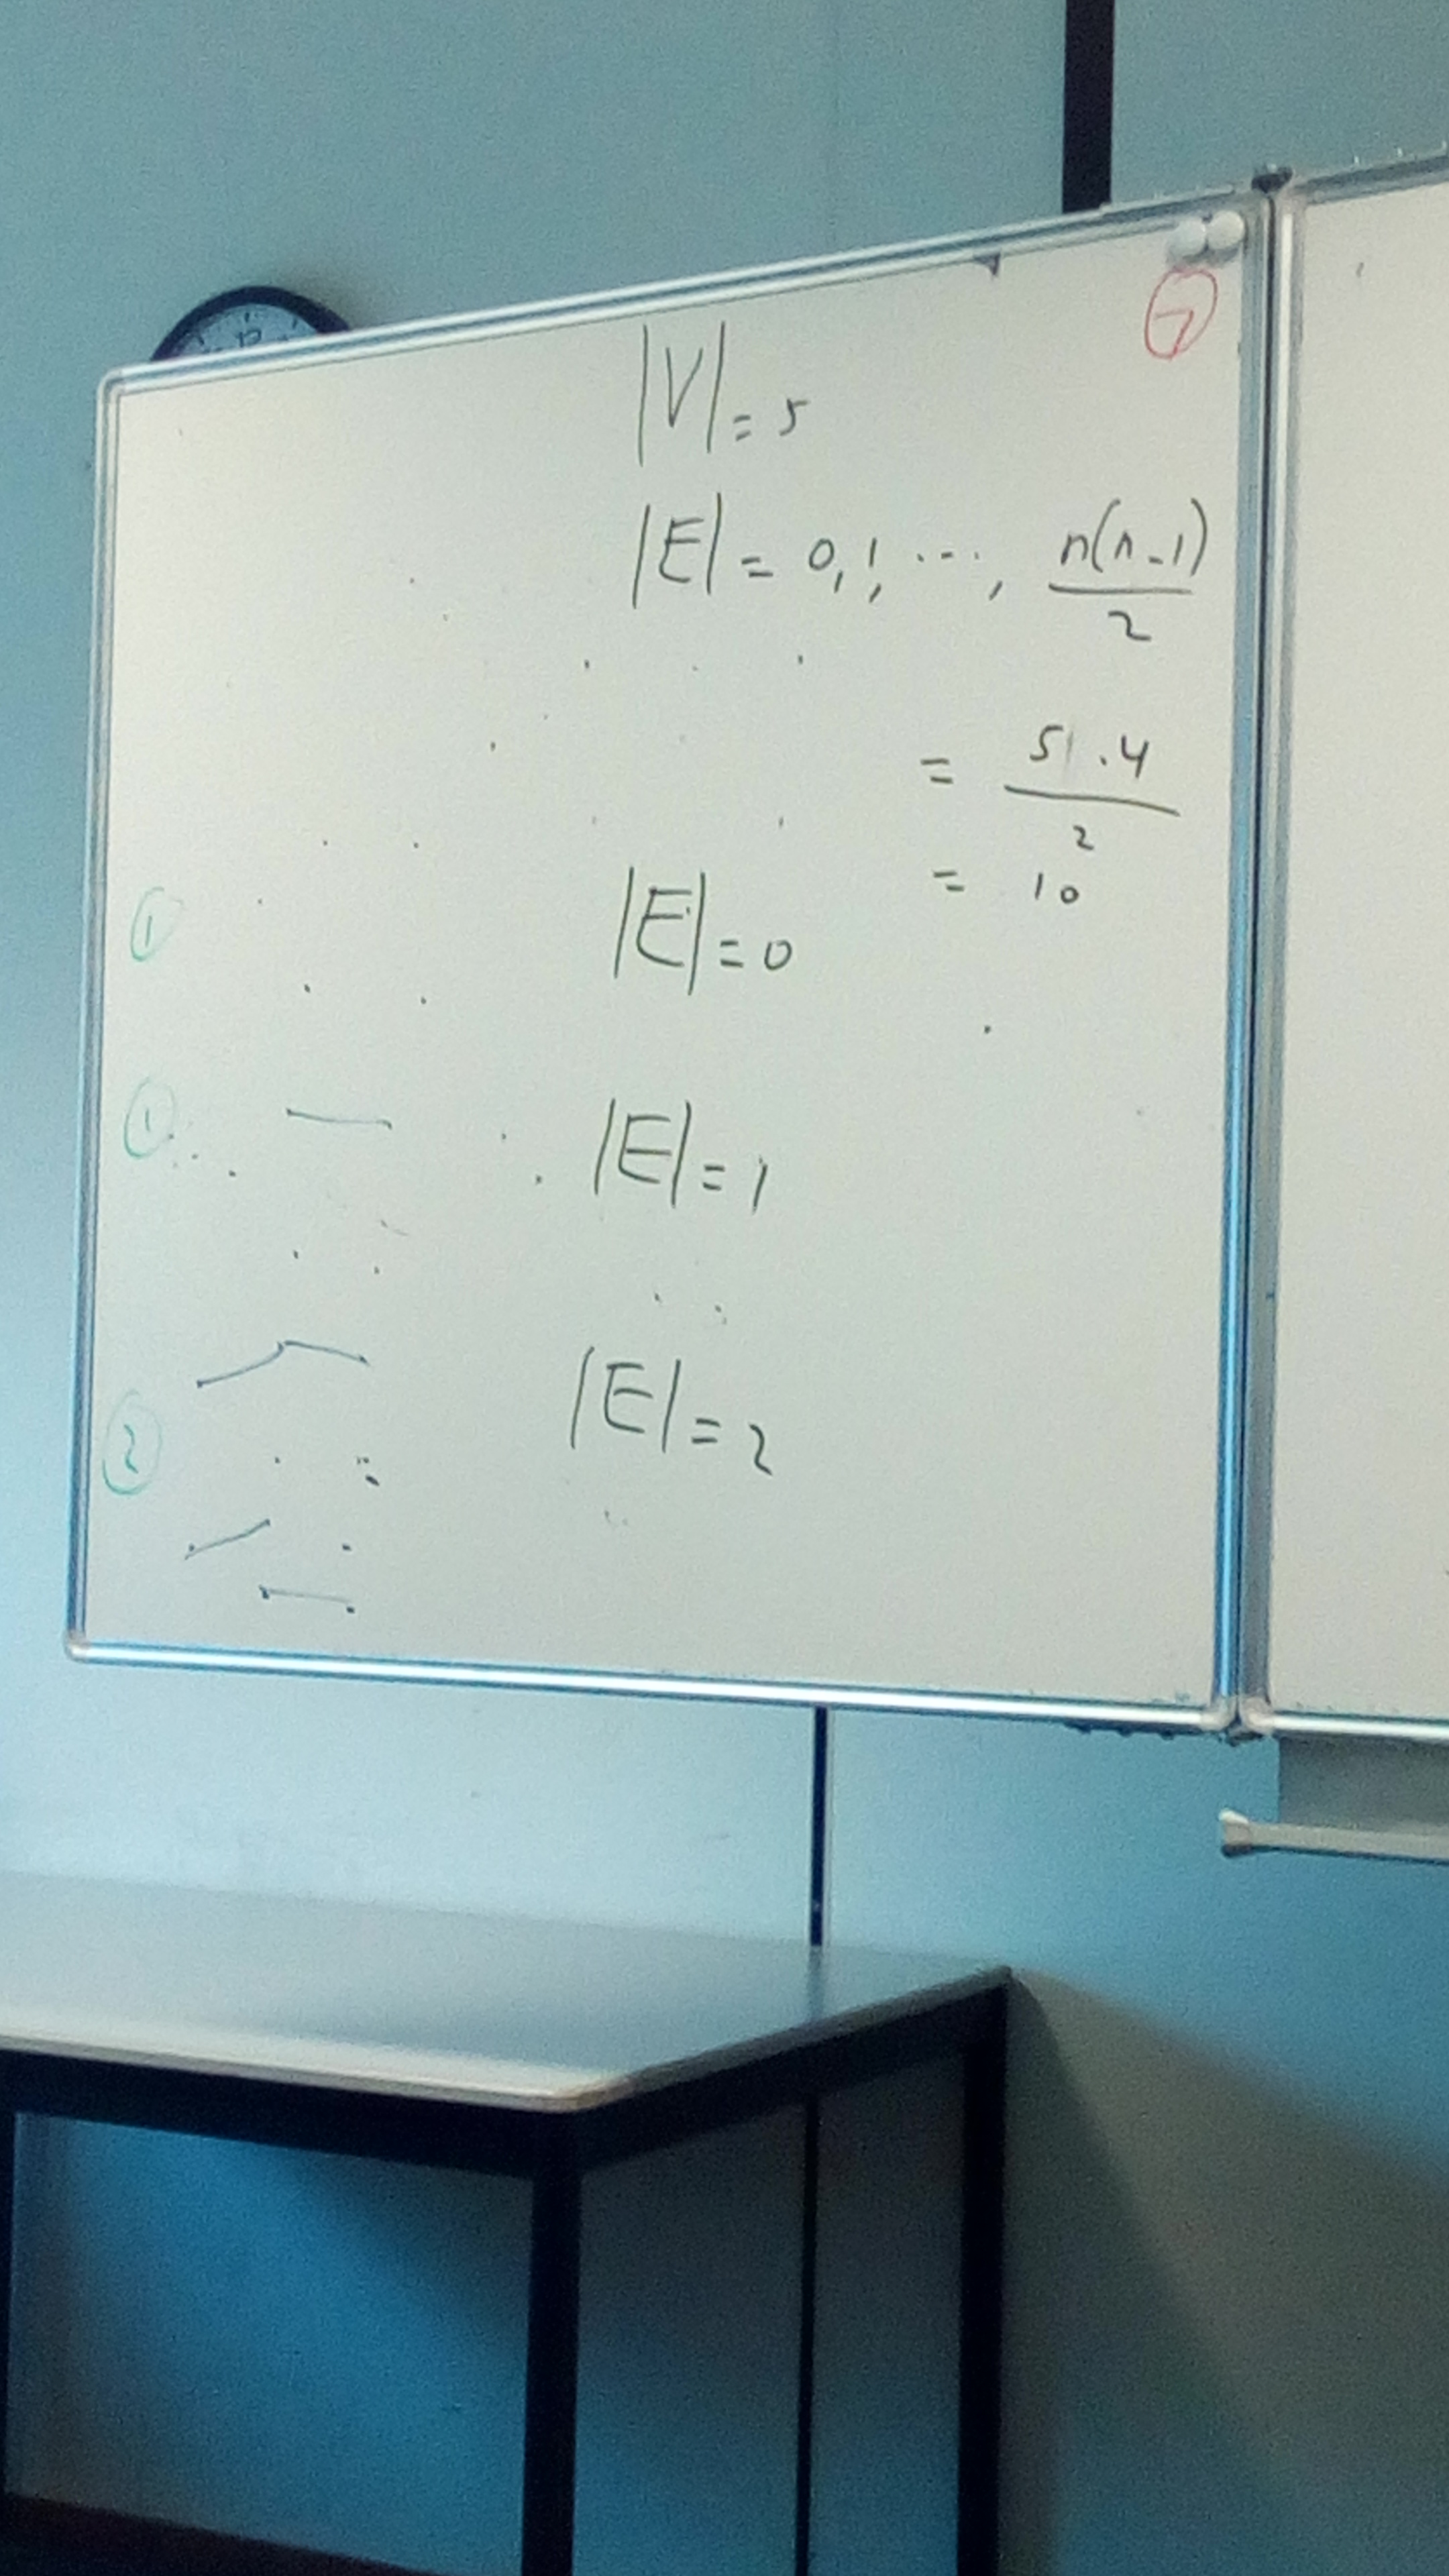 12
⑦
|V| = 5
|E| = 0, 1, ..., n(n-1)/2
= 5 . 4 / 2
= 10
① |E| = 0
① |E| = 1
② |E| = 2